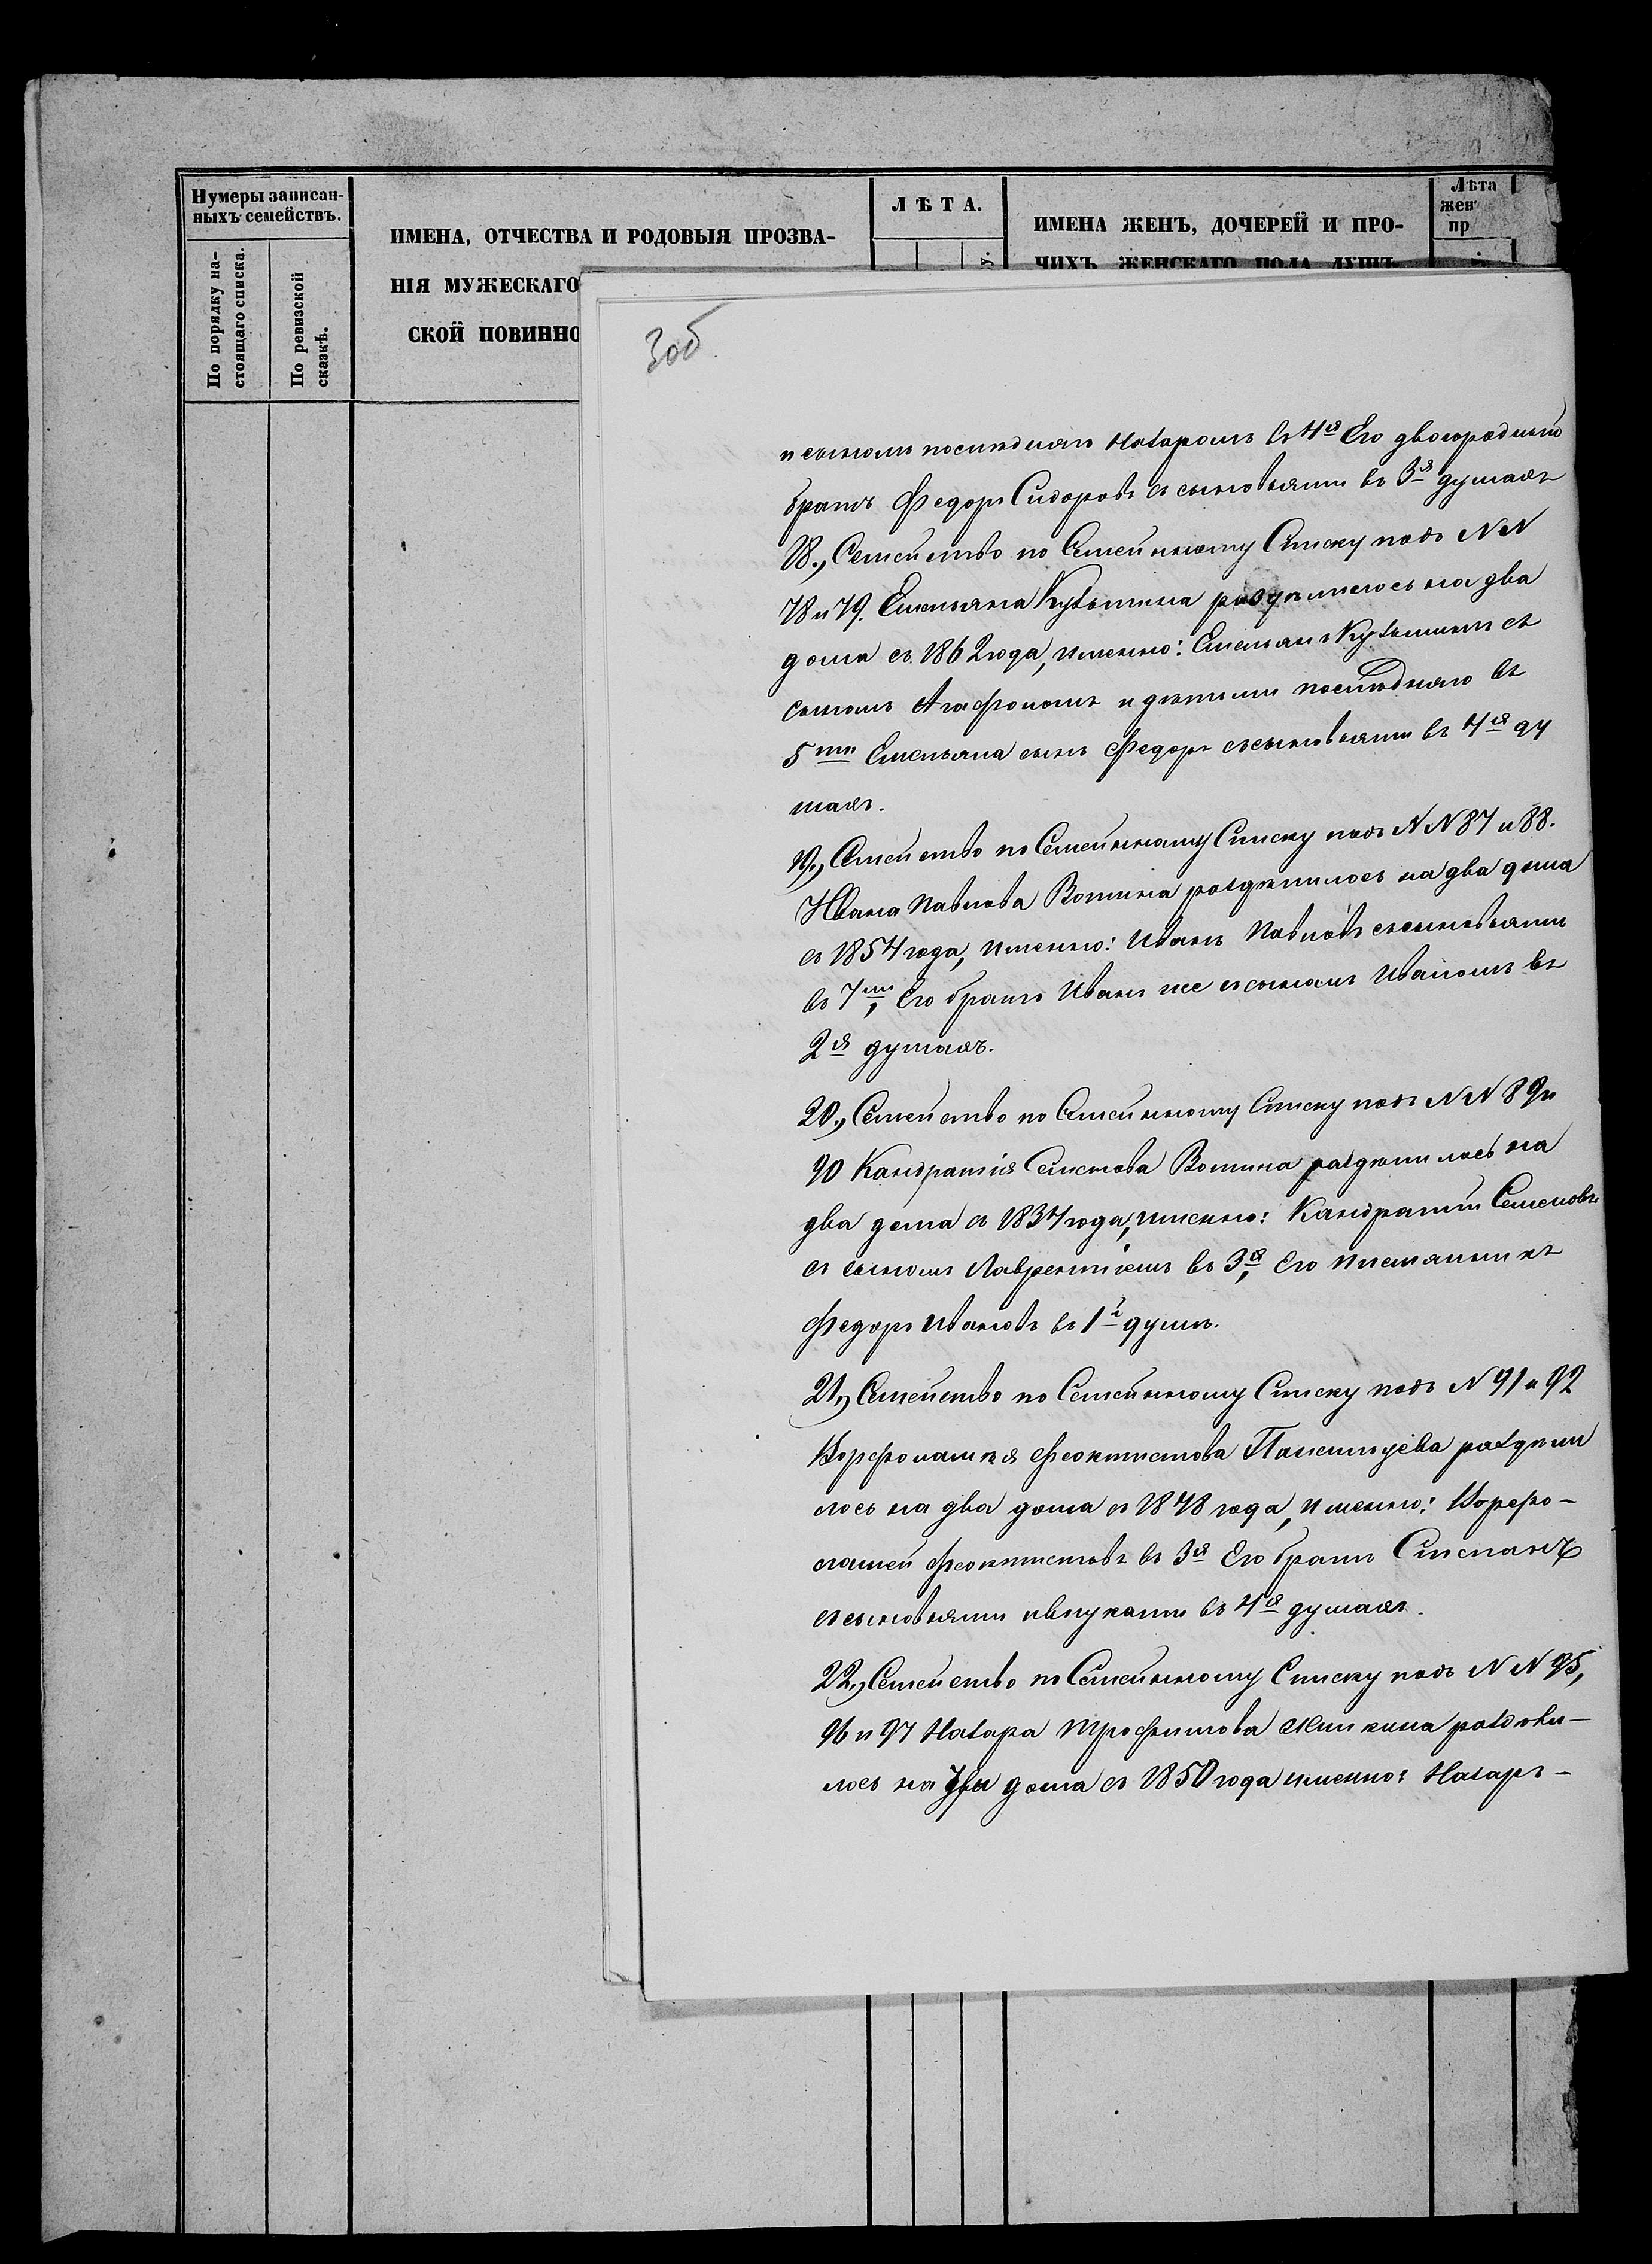 Нумеры записан-
ныхъ семействъ.
По порядку на-
стоящаго списка.
По ревизской
сказкѣ.
ИМЕНА, ОТЧЕСТВА И РОДОВЫЯ ПРОЗВА-
НІЯ МУЖЕСКАГО
СКОЙ ПОВИННО
ЛѢТА.
ИМЕНА ЖЕНЪ, ДОЧЕРЕЙ И ПРО-
ЧИХЪ ЖЕНСКАГО ПОЛА ДУШЪ
Лѣта
жен
пр
3об
и сыномъ послѣдняго Назаромъ въ 4хъ Его двоюродный
братъ Федоръ Сидоровъ съ сыновьями въ 3хъ душахъ
18., Семейство по Семейному Списку подъ NN
78 и 79. Емельяна Кузьмина раздѣлилось на два
дома съ 1862 года, именно: Емельянъ Кузьминъ съ
сыномъ Агафономъ и дѣтьми послѣдняго въ
5ти Емельяна сынъ Федоръ съ сыновьями въ 4хъ ду
шахъ.
19., Семейство по Семейному Списку подъ NN 87 и 88.
Ивана Павлова Вотина раздѣлилось на два дома
съ 1854 года, именно: Иванъ Павловъ съ сыновьями
въ 7ми, Его братъ Иванъ же съ сыномъ Иваномъ въ
2хъ душахъ.
20., Семейство по Семейному Списку подъ NN 89 и
90 Кандратія Семенова Вотина раздѣлилось на
два дома съ 1834 года, именно: Кандратій Семеновъ
съ сыномъ Лаврентіемъ въ 3хъ, Его племянникъ
Федоръ Ивановъ въ 1й душѣ.
21., Семейство по Семейному Списку подъ N 91 и 92
Ворфоламѣя Феоктистова раздѣли
лось на два дома съ 1848 года, именно: Ворфо-
ламей Феоктистовъ въ 3хъ Его братъ Степанъ
съ сыновьями и внуками въ 4хъ душахъ.
22., Семейство по Семейному Списку подъ NN 95,
96 и 97 Назара Трофимова раздѣли-
лось на три дома съ 1850 года именно: Назаръ-